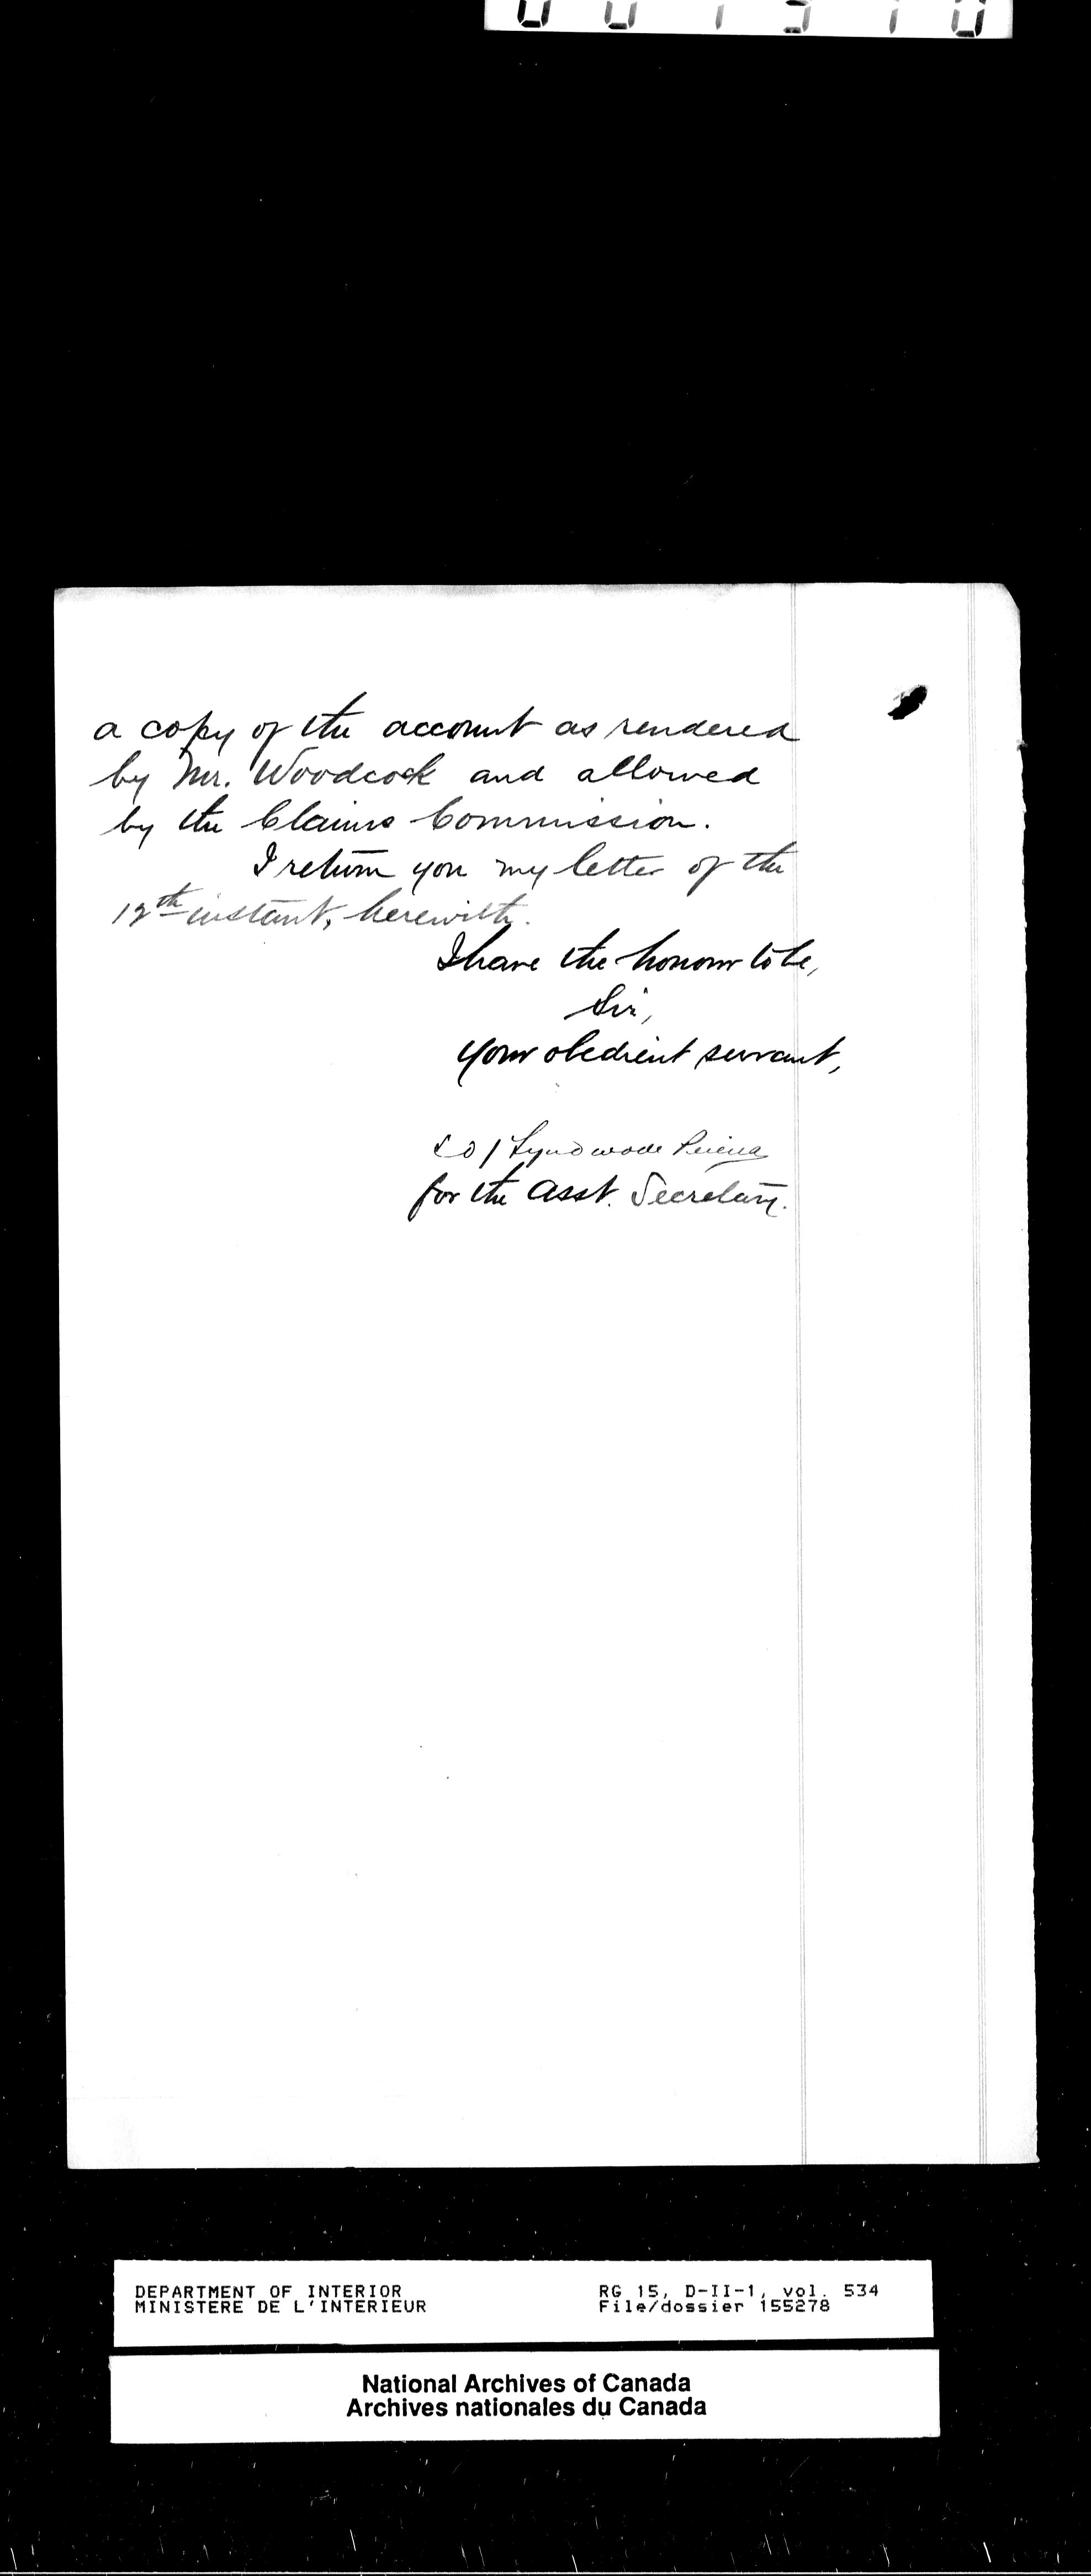 a copy of the account as rendered
by Mr. Woodcock and allowed
by the Claims Commission.
I return you my letter of the
12th instant, herewith.
I have the honour to be,
Sir,
Your obedient servant,
Lyndwode Pereira
for the Asst. Secretary.
DEPARTMENT OF INTERIOR
MINISTERE DE L'INTERIEUR
RG 15, D-II-1, vol. 534
File/dossier 155278
National Archives of Canada
Archives nationales du Canada